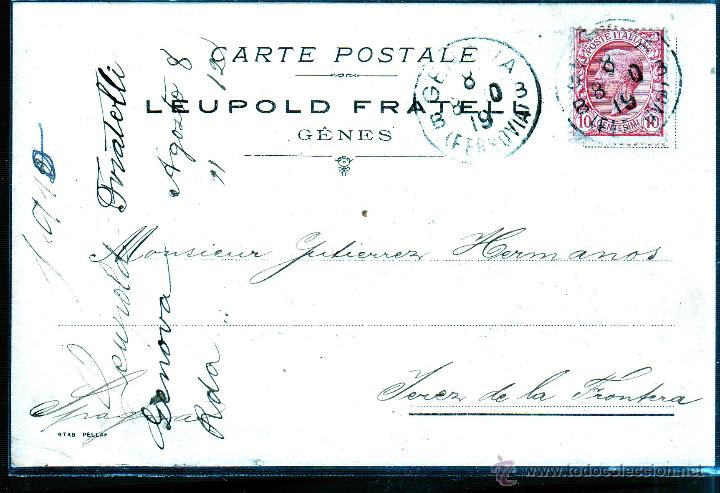 CARTE POSTALE
LEUPOLD FRATELLI
GÊNES
POSTE ITALIANE
10 CENTESIMI 10
GENOVA
8 8 10
19
(FERROVIA)
8 8 10
19
Monsieur Gutierrez Hermanos
Jerez de la Frontera
Leupold Fratelli
Genova Agosto 8
Rda " " 12
STAB PELLAS
todocoleccion.net